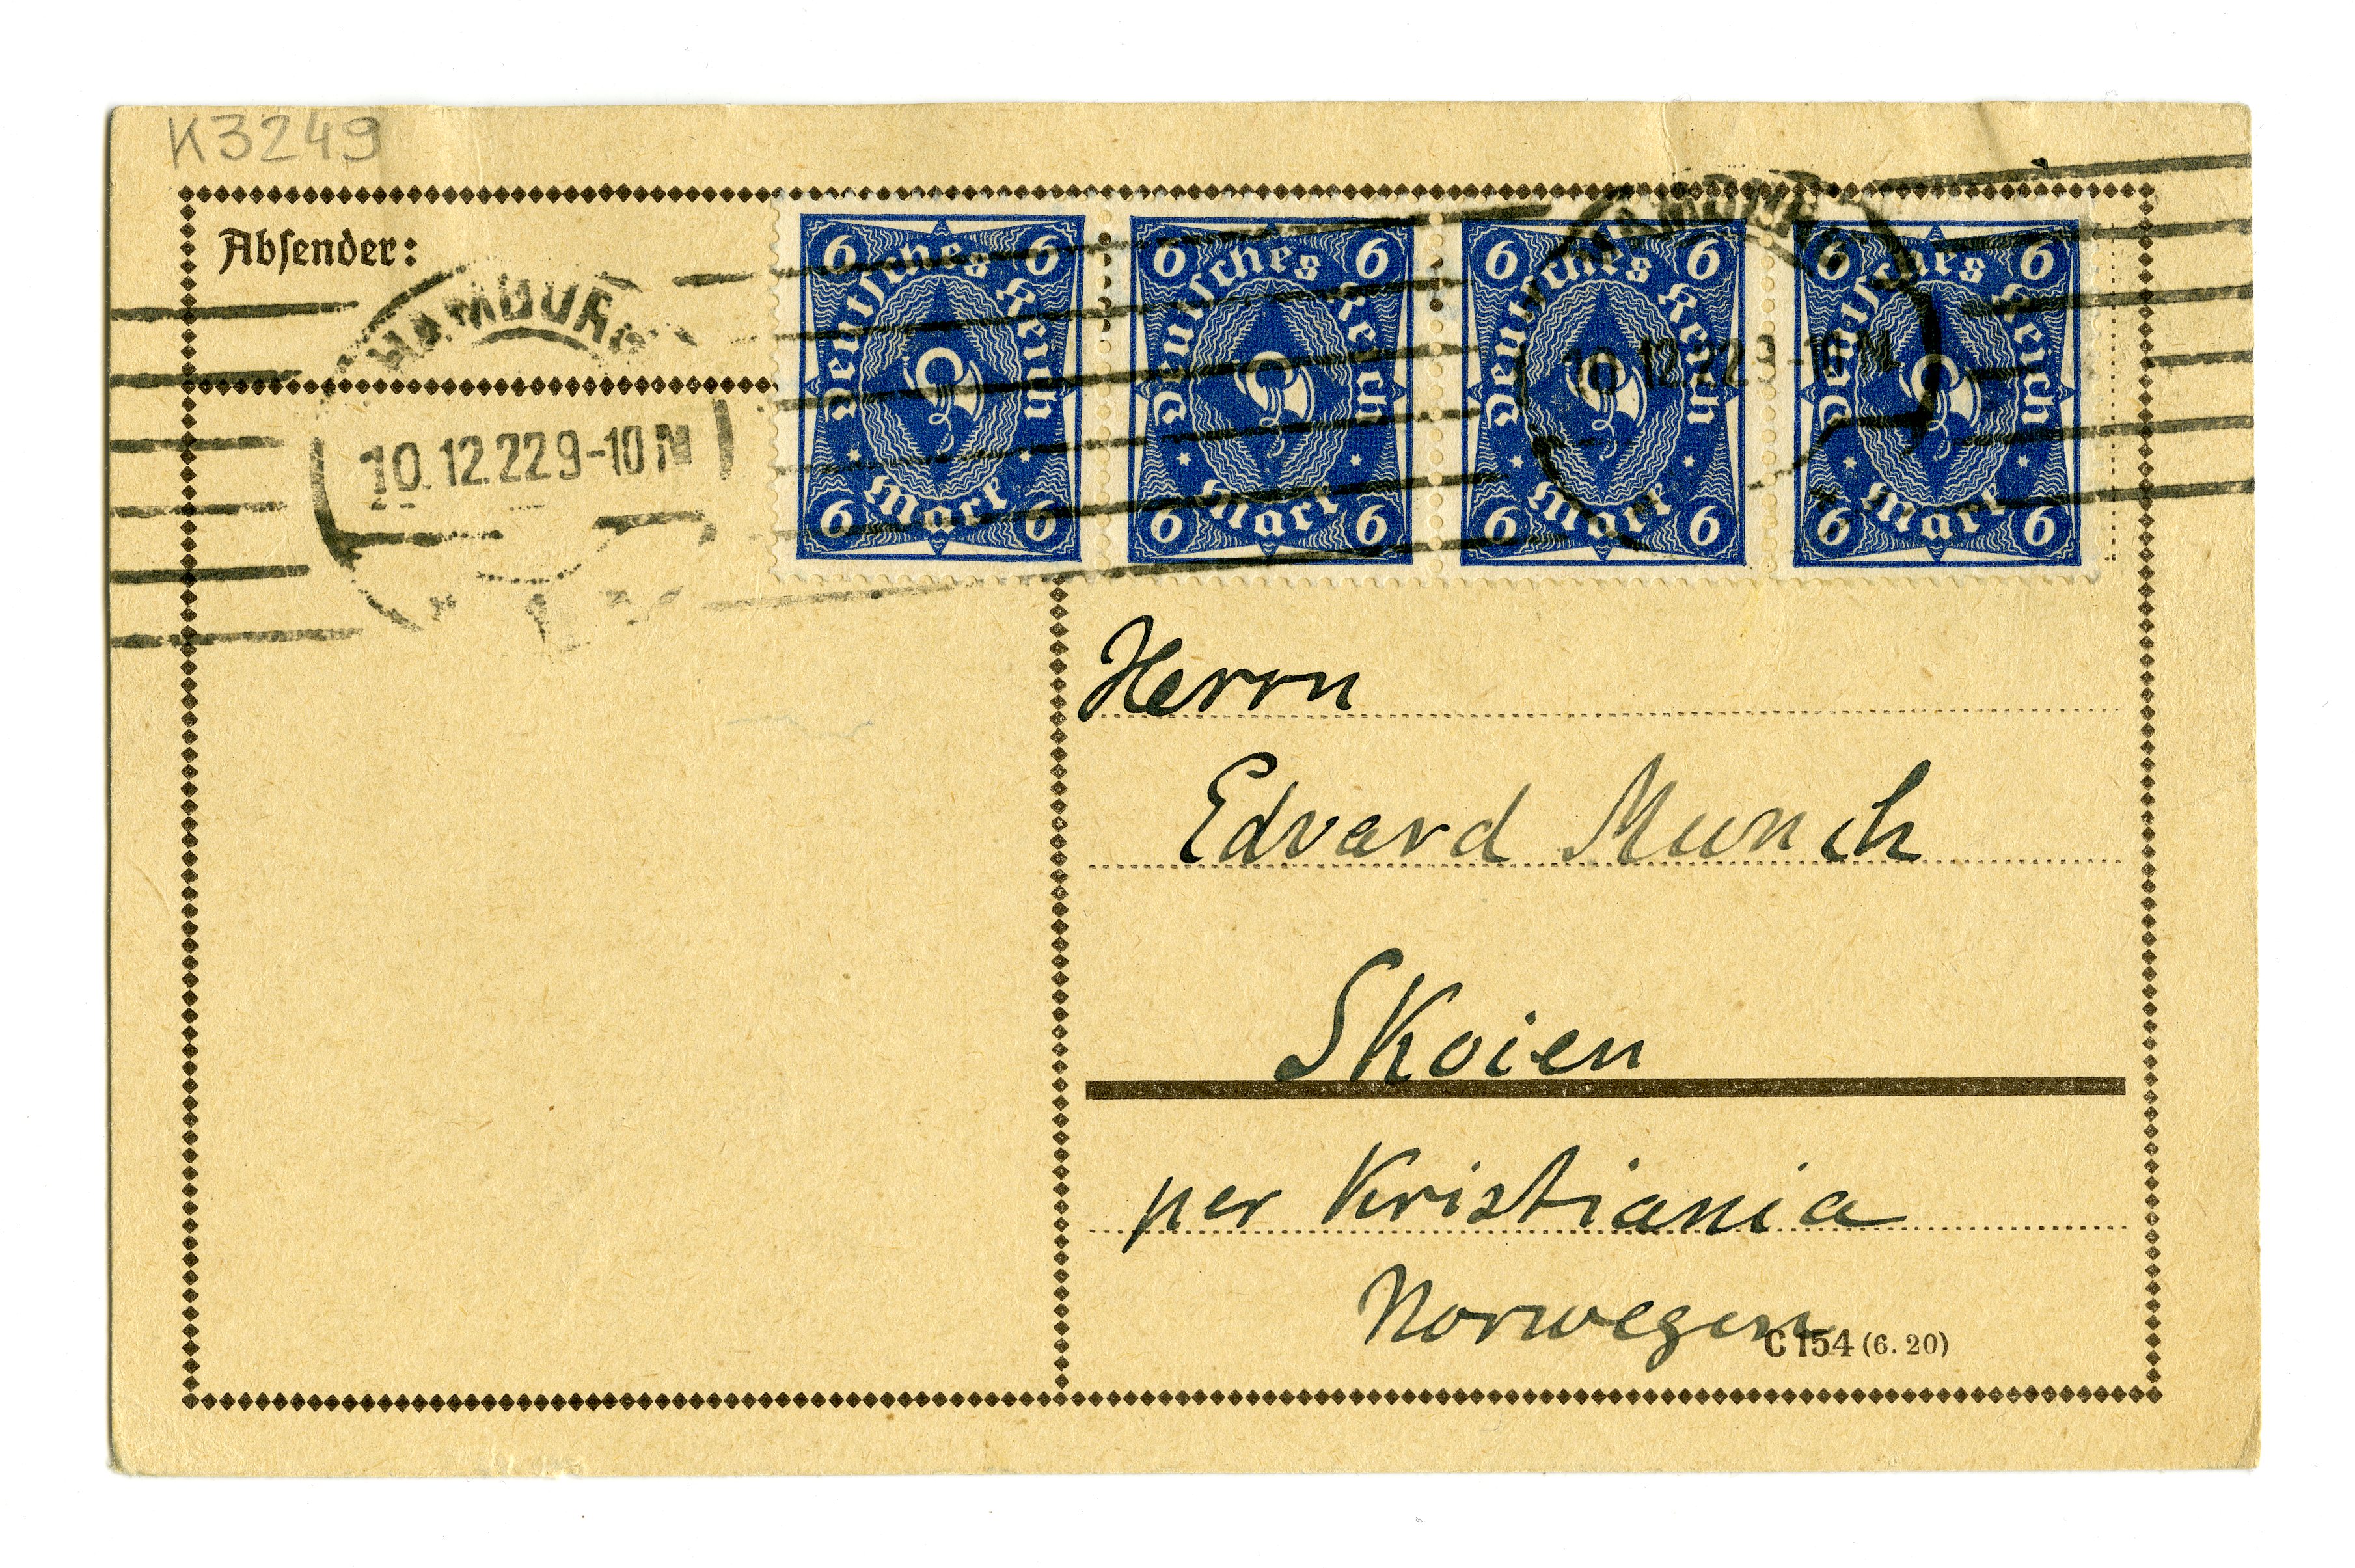 K3249
Absender:
HAMBURG
10.12.22 9-10 N
6 6
Deutsches Reich
Mark
6 6
6 6
Deutsches Reich
Mark
6 6
6 6
Deutsches Reich
Mark
6 6
6 6
Deutsches Reich
Mark
6 6
HAMBURG
10.12.22 9-10 N
Herrn
Edvard Munch
Skoien
per Kristiania
Norwegen
C 154 (6. 20)